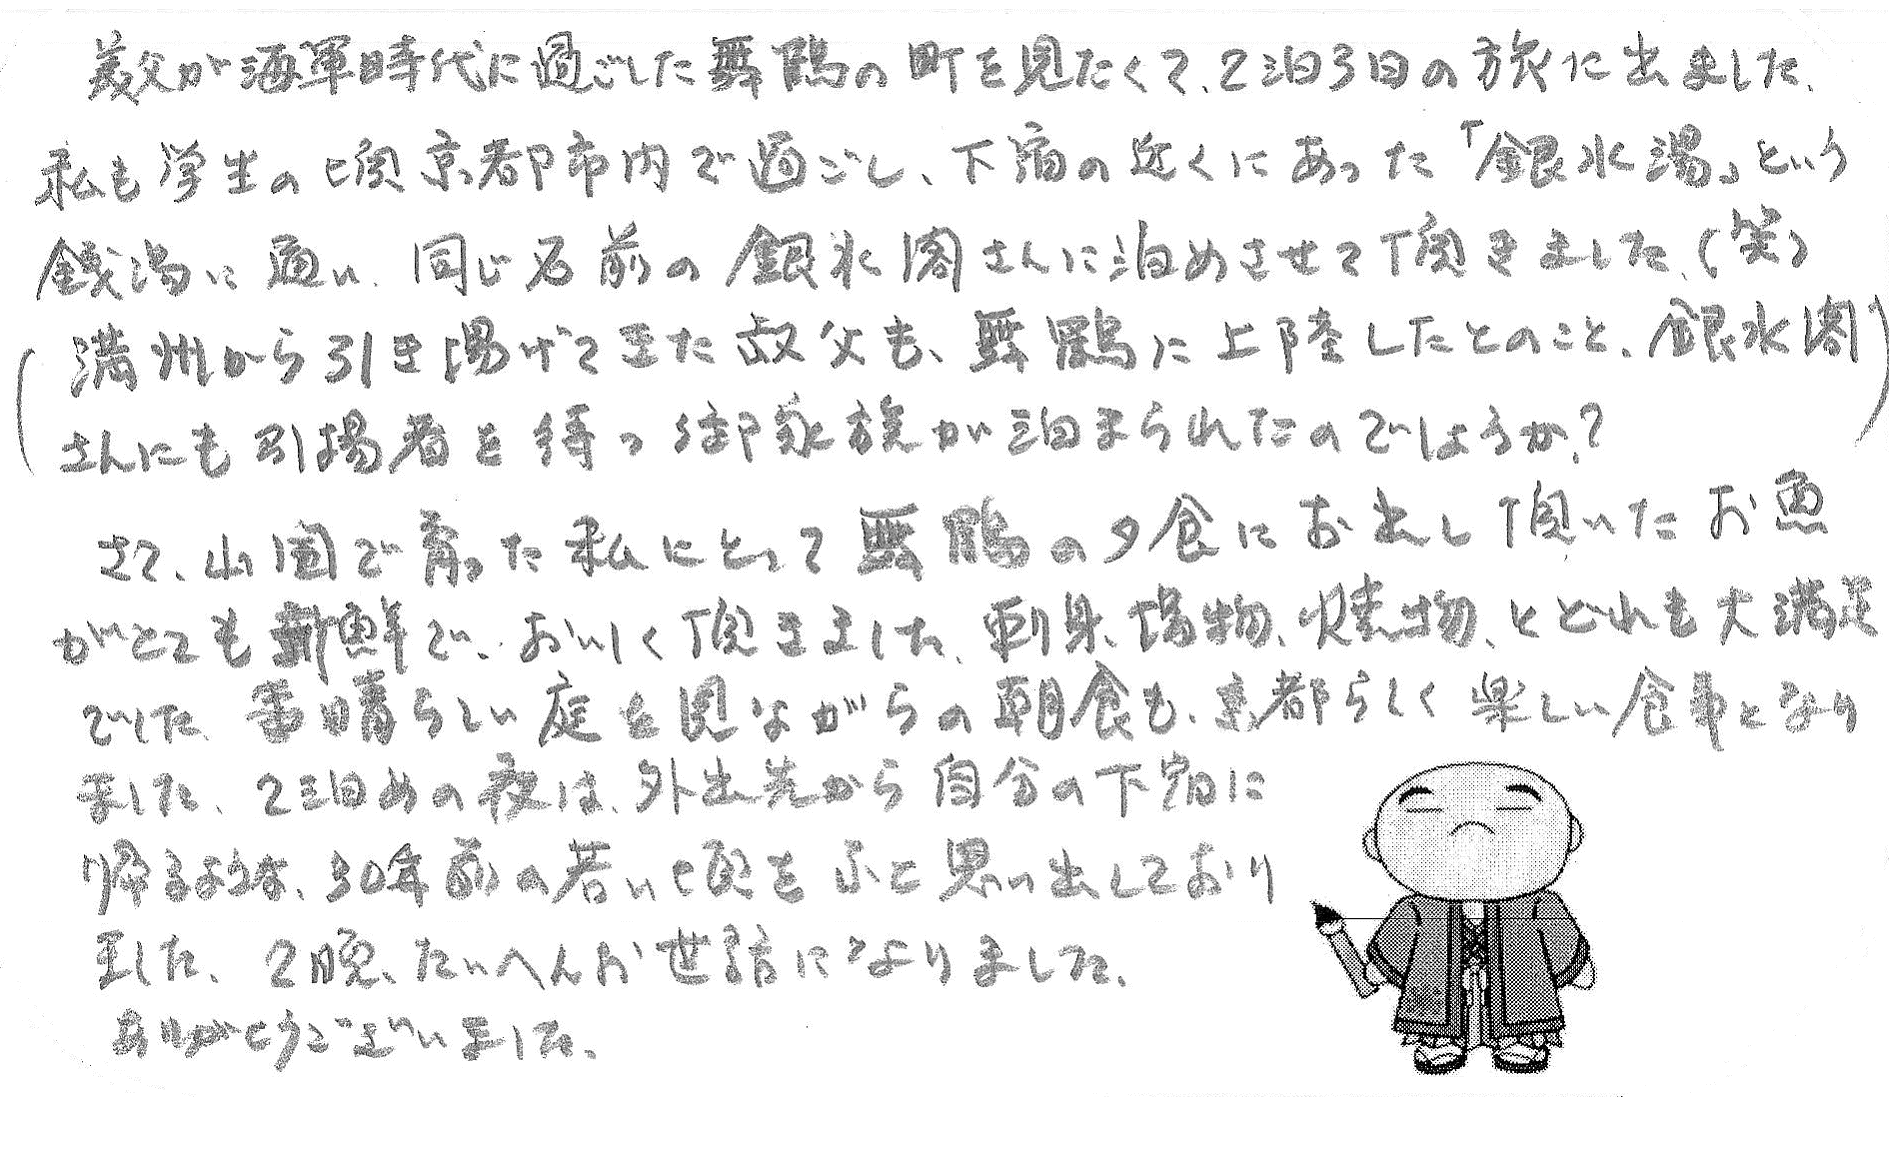 義父が海軍時代に過ごした舞鶴の町を見たくて、2泊3日の旅に出ました。
私も学生の頃京都市内で過ごし、下宿の近くにあった「銀水湯」という
銭湯に通い、同じ名前の銀水閣さんに泊めさせて頂きました。(笑)
(満州から引き揚げてきた叔父も、舞鶴に上陸したとのこと、銀水閣
さんにも引揚者を待つ御家族が泊まられたのでしょうか?)
さて、山国で育った私にとって舞鶴の夕食にお出し頂いたお魚
がとても新鮮で、おいしく頂きました。刺身、揚物、焼物、とどれも大満足
でした。素晴らしい庭を見ながらの朝食も、京都らしく楽しい食事となり
ました。2泊めの夜は、外出先から自分の下宿に
帰るような、30年前の若い頃をふと思い出しており
ました。2晩、たいへんお世話になりました。
ありがとうございました。